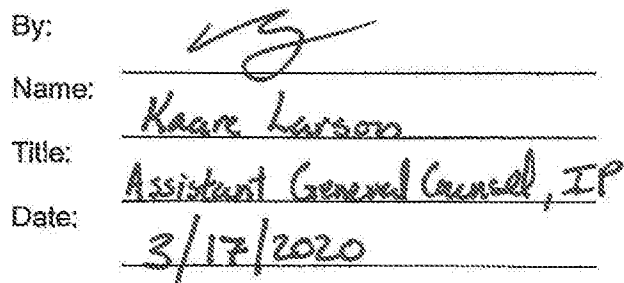 By:
Name: Kaare Larson
Title: Assistant General Counsel, IP
Date: 3/17/2020